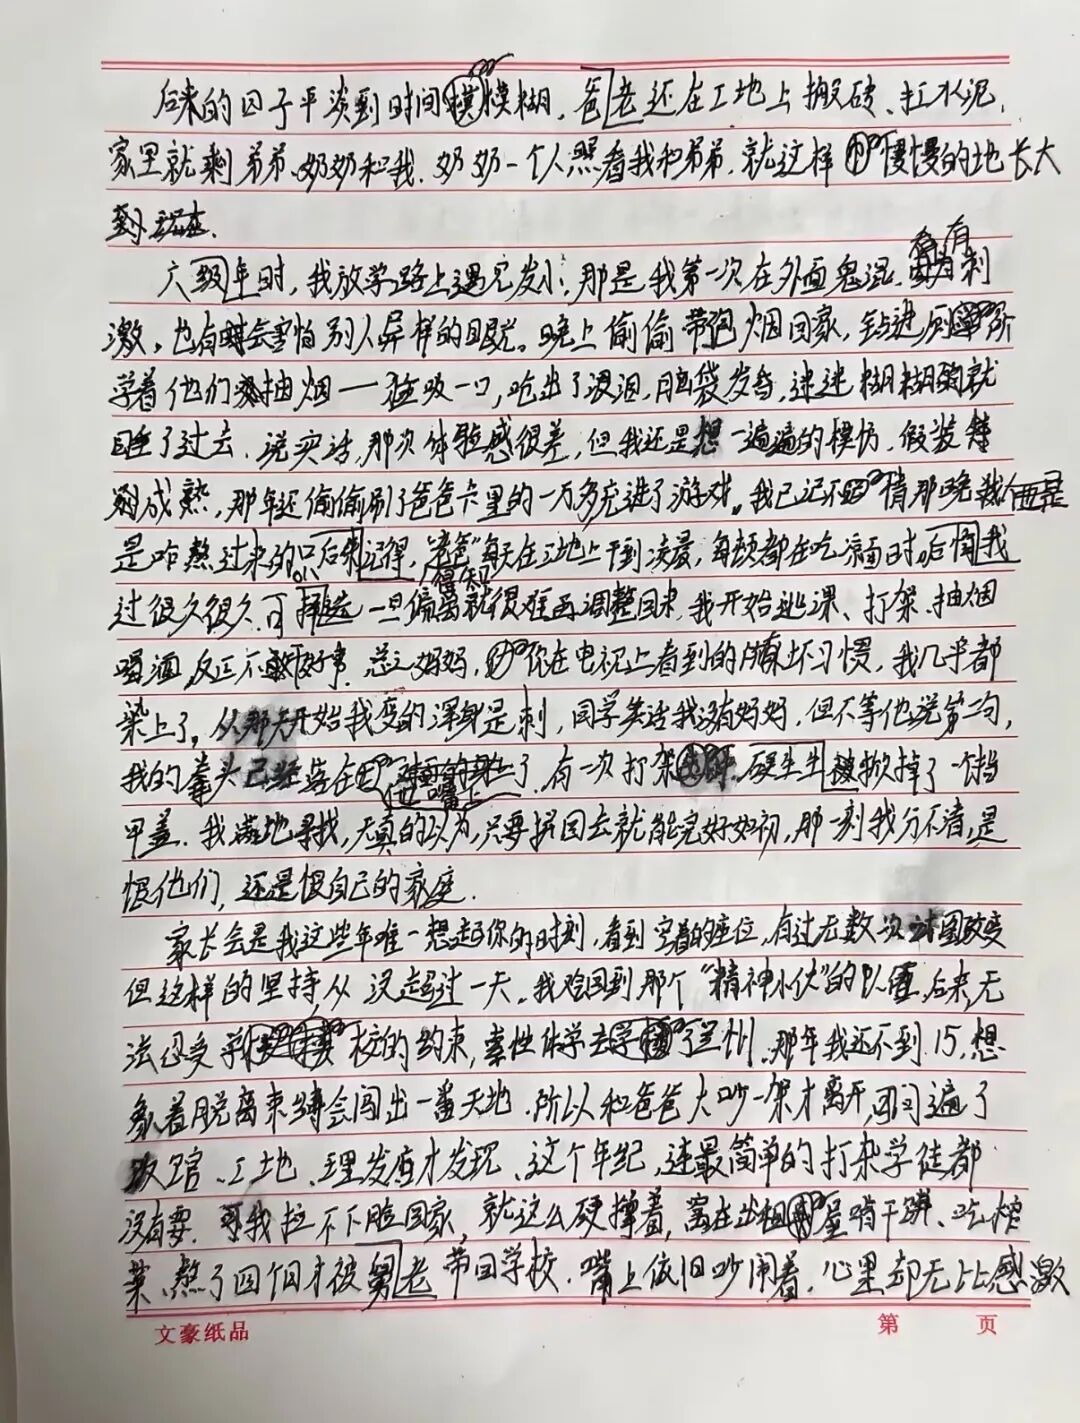 后来的日子平淡到时间模糊，爸老还在工地上搬砖、扛水泥，
家里就剩弟弟、奶奶和我，奶奶一个人照看我和弟弟，就这样慢慢的地长大
到现在.
六级年时，我放学路上遇见发小，那是我第一次在外面鬼混，有刺
激，也有会害怕别人异样的眼光。晚上偷偷带包烟回家，钻进厕所
学着他们抽烟一一猛吸一口，呛出了眼泪，脑袋发昏，迷迷糊糊就
睡了过去，说实话，那次体验感很差，但我还是想一遍遍的模仿，假装
成熟，那年还偷偷刷了爸爸卡里的一万多充进了游戏。我已记不清那晚
是咋熬过来的只后来记得，"爸爸"每天在工地上干到凌晨，每顿都在吃凉面时，后悔我
过很久很久，可一旦偏离就很难再调整回来，我开始逃课、打架、抽烟
喝酒，反正不好事，总之妈妈，你在电视上看到的坏习惯，我几乎都
染上了，从那天开始我变的浑身是刺，同学笑话我没有妈妈，但不等他说第二句，
我的拳头已经落在他嘴上了，有一次打架，硬生生被掀掉了一个指
甲盖，我满地寻找，天真的以为，只要拼回去就能完好如初，那一刻我分不清，是
恨他们，还是恨自己的家庭.
家长会是我这些年唯一想起你的时刻，看到空着的座位，有过无数次试图改变
但这样的坚持，从没超过一天。我总回到那个"精神小伙"的队伍，后来，无
法忍受学校的约束，索性休学去了兰州，那年我还不到15，想
象着脱离束缚会闯出一番天地，所以和爸爸大吵一架才离开，问遍了
饭馆、工地、理发店才发现，这个年纪，连最简单的打杂学徒都
没有要，可我拉不下脸回家，就这么硬撑着，窝在出租屋啃干饼、吃榨
菜，熬了四个月才被舅老带回学校，嘴上依旧吵闹着，心里却无比感激
文豪纸品
第 页